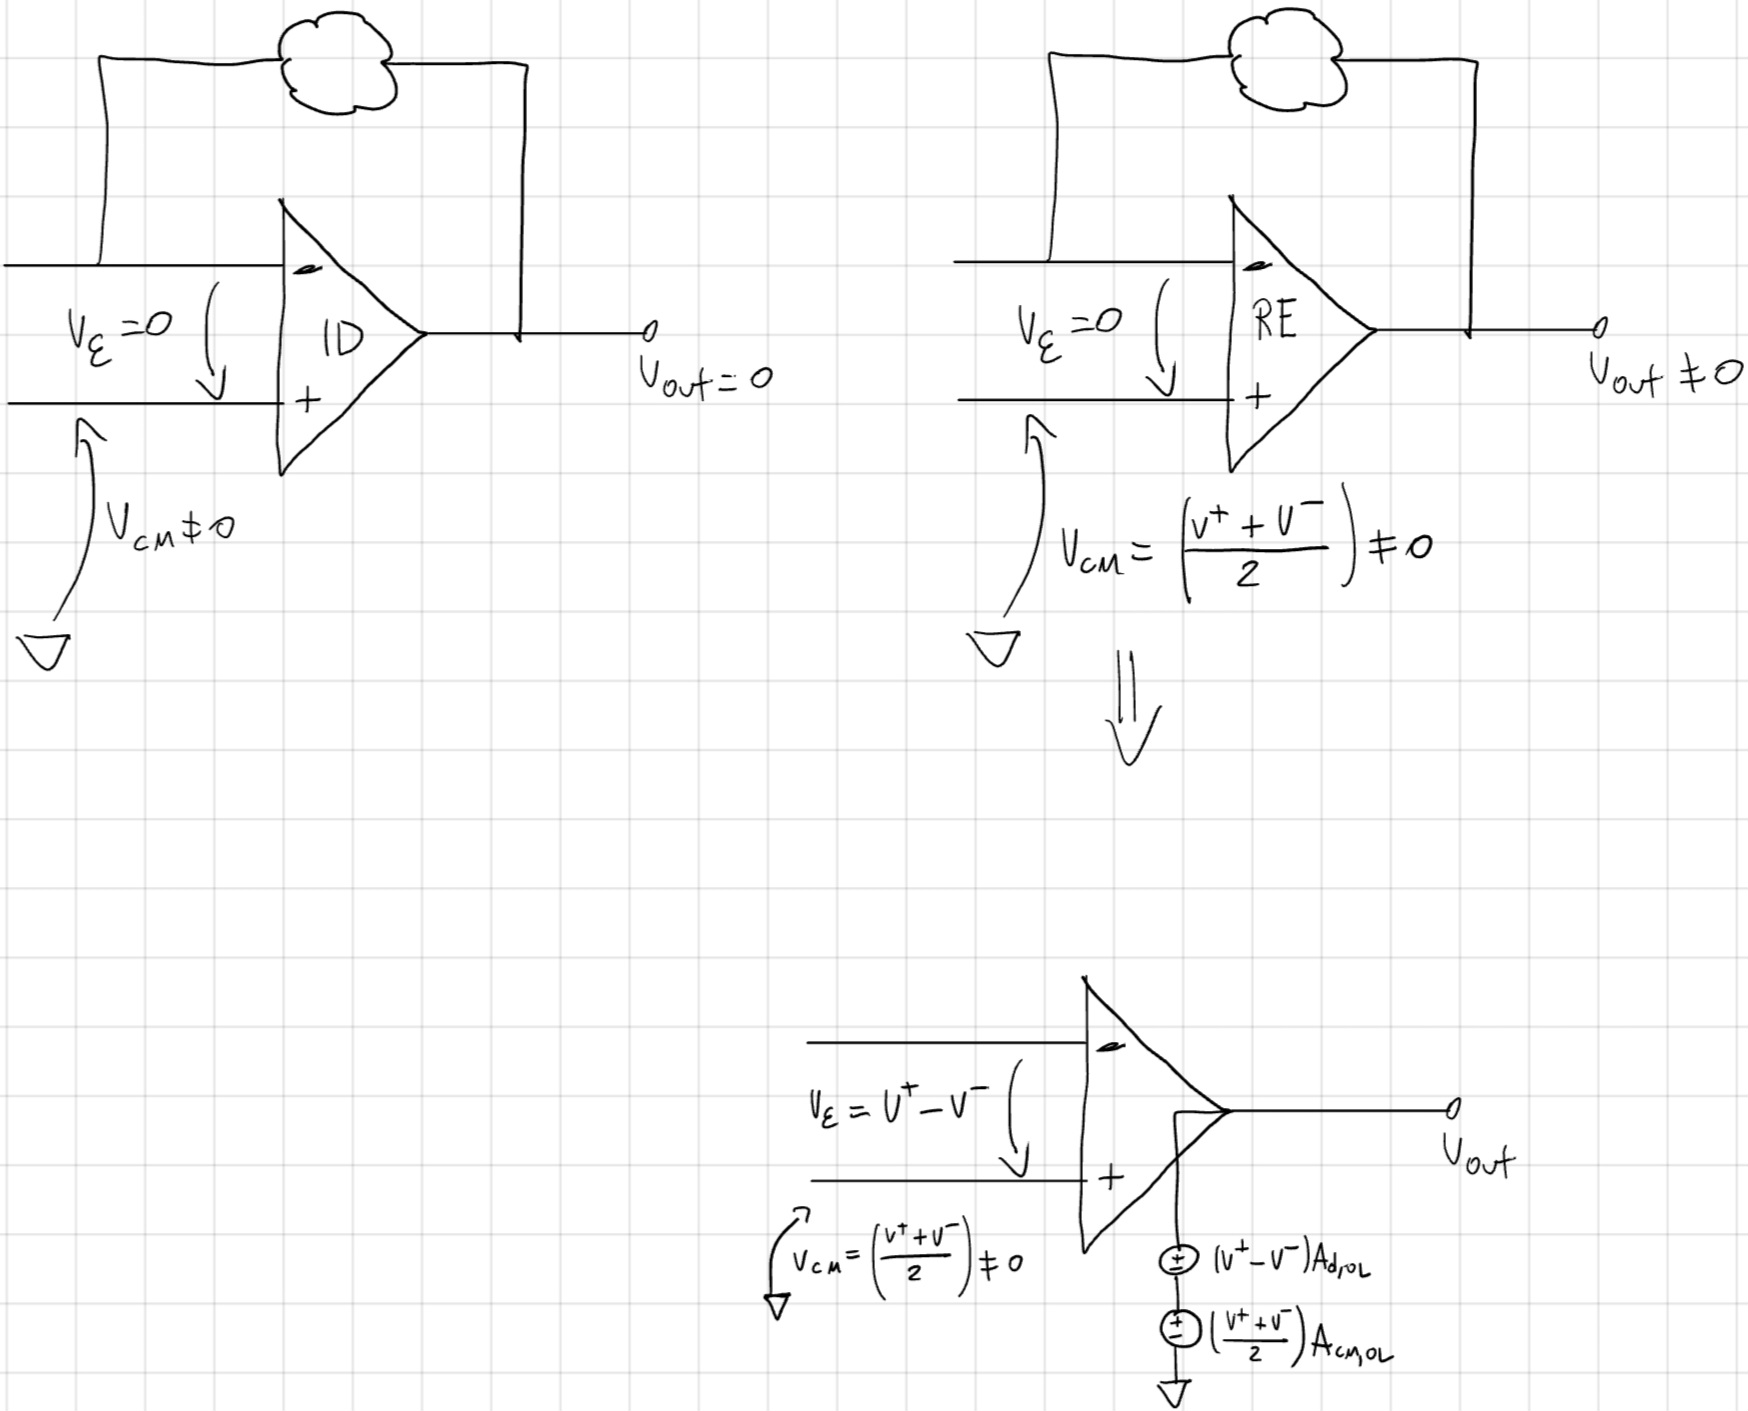 -
Vε = 0
ID
+
Vout = 0
VCM ≠ 0
-
Vε = 0
RE
+
Vout ≠ 0
VCM = ((V⁺ + V⁻)/2) ≠ 0
⇓
-
Vε = V⁺ - V⁻
+
Vout
VCM = ((V⁺ + V⁻)/2) ≠ 0
± (V⁺ - V⁻)Ad,OL
± ((V⁺ + V⁻)/2)ACM,OL